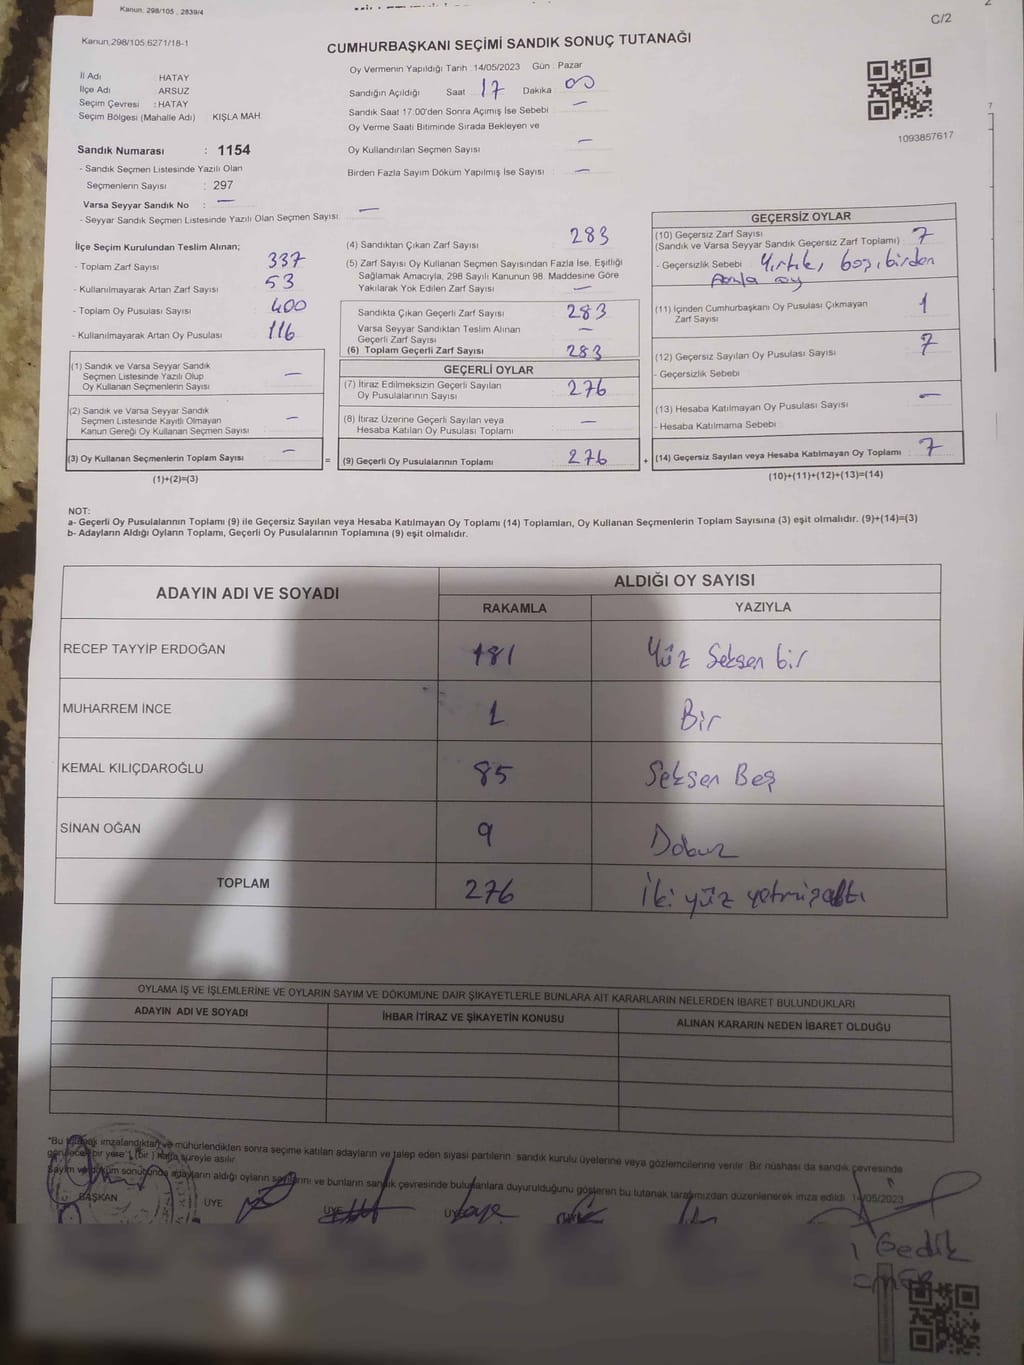 Kanun, 298/105 , 2839/4
C/2
Kanun,298/105,6271/18-1
CUMHURBAŞKANI SEÇİMİ SANDIK SONUÇ TUTANAĞI
İl Adı : HATAY
İlçe Adı ARSUZ
Seçim Çevresi : HATAY
Seçim Bölgesi (Mahalle Adı) KIŞLA MAH.
Oy Vermenin Yapıldığı Tarih :14/05/2023 Gün : Pazar
Sandığın Açıldığı Saat 17 Dakika 00
Sandık Saat 17:00'den Sonra Açımış İse Sebebi —
Oy Verme Saati Bitiminde Sırada Bekleyen ve
Oy Kullandırılan Seçmen Sayısı —
Birden Fazla Sayım Döküm Yapılmış İse Sayısı —
1093857617
Sandık Numarası : 1154
- Sandık Seçmen Listesinde Yazılı Olan
Seçmenlerin Sayısı : 297
Varsa Seyyar Sandık No : —
- Seyyar Sandık Seçmen Listesinde Yazılı Olan Seçmen Sayısı: —
İlçe Seçim Kurulundan Teslim Alınan;
- Toplam Zarf Sayısı 337
- Kullanılmayarak Artan Zarf Sayısı 53
- Toplam Oy Pusulası Sayısı 400
- Kullanılmayarak Artan Oy Pusulası 116
(1) Sandık ve Varsa Seyyar Sandık
Seçmen Listesinde Yazılı Olup
Oy Kullanan Seçmenlerin Sayısı —
(2) Sandık ve Varsa Seyyar Sandık
Seçmen Listesinde Kayıtlı Olmayan
Kanun Gereği Oy Kullanan Seçmen Sayısı —
(3) Oy Kullanan Seçmenlerin Toplam Sayısı —
(1)+(2)=(3)
=
(4) Sandıktan Çıkan Zarf Sayısı 283
(5) Zarf Sayısı Oy Kullanan Seçmen Sayısından Fazla İse, Eşitliği
Sağlamak Amacıyla, 298 Sayılı Kanunun 98. Maddesine Göre
Yakılarak Yok Edilen Zarf Sayısı —
Sandıkta Çıkan Geçerli Zarf Sayısı 283
Varsa Seyyar Sandıktan Teslim Alınan
Geçerli Zarf Sayısı —
(6) Toplam Geçerli Zarf Sayısı 283
GEÇERLİ OYLAR
(7) İtiraz Edilmeksizin Geçerli Sayılan
Oy Pusulalarının Sayısı 276
(8) İtiraz Üzerine Geçerli Sayılan veya
Hesaba Katılan Oy Pusulası Toplamı —
(9) Geçerli Oy Pusulalarının Toplamı 276
+
GEÇERSİZ OYLAR
(10) Geçersiz Zarf Sayısı
(Sandık ve Varsa Seyyar Sandık Geçersiz Zarf Toplamı) : 7
- Geçersizlik Sebebi Yırtık, boş, birden
fazla oy
(11) İçinden Cumhurbaşkanı Oy Pusulası Çıkmayan
Zarf Sayısı 1
(12) Geçersiz Sayılan Oy Pusulası Sayısı 7
- Geçersizlik Sebebi
(13) Hesaba Katılmayan Oy Pusulası Sayısı —
- Hesaba Katılmama Sebebi
(14) Geçersiz Sayılan veya Hesaba Katılmayan Oy Toplamı : 7
(10)+(11)+(12)+(13)=(14)
NOT:
a- Geçerli Oy Pusulalarının Toplamı (9) ile Geçersiz Sayılan veya Hesaba Katılmayan Oy Toplamı (14) Toplamları, Oy Kullanan Seçmenlerin Toplam Sayısına (3) eşit olmalıdır. (9)+(14)=(3)
b- Adayların Aldığı Oyların Toplamı, Geçerli Oy Pusulalarının Toplamına (9) eşit olmalıdır.
ADAYIN ADI VE SOYADI
ALDIĞI OY SAYISI
RAKAMLA YAZIYLA
RECEP TAYYİP ERDOĞAN 181 Yüz Seksen bir
MUHARREM İNCE 1 Bir
KEMAL KILIÇDAROĞLU 85 Seksen Beş
SİNAN OĞAN 9 Dokuz
TOPLAM 276 İki yüz yetmiş altı
OYLAMA İŞ VE İŞLEMLERİNE VE OYLARIN SAYIM VE DÖKÜMÜNE DAİR ŞİKAYETLERLE BUNLARA AİT KARARLARIN NELERDEN İBARET BULUNDUKLARI
ADAYIN ADI VE SOYADI İHBAR İTİRAZ VE ŞİKAYETİN KONUSU ALINAN KARARIN NEDEN İBARET OLDUĞU
"Bu tutanak imzalandıktan ve mühürlendikten sonra seçime katılan adayların ve talep eden siyasi partilerin sandık kurulu üyelerine veya gözlemcilerine verilir. Bir nüshası da sandık çevresinde
görülecek bir yere 1 (bir) hafta süreyle asılır.
Sayım ve döküm sonucunda adayların aldığı oyların sayılarını ve bunların sandık çevresinde bulunanlara duyurulduğunu gösteren bu tutanak tarafımızdan düzenlenerek imza edildi. 14/05/2023
BAŞKAN ÜYE ÜYE ÜYE
Gedik